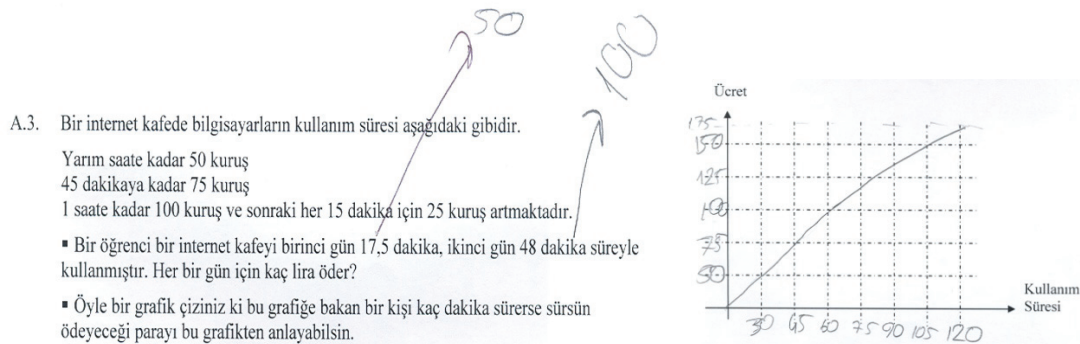 50
100
A.3. Bir internet kafede bilgisayarların kullanım süresi aşağıdaki gibidir.
Yarım saate kadar 50 kuruş
45 dakikaya kadar 75 kuruş
1 saate kadar 100 kuruş ve sonraki her 15 dakika için 25 kuruş artmaktadır.
▪ Bir öğrenci bir internet kafeyi birinci gün 17,5 dakika, ikinci gün 48 dakika süreyle
kullanmıştır. Her bir gün için kaç lira öder?
▪ Öyle bir grafik çiziniz ki bu grafiğe bakan bir kişi kaç dakika sürerse sürsün
ödeyeceği parayı bu grafikten anlayabilsin.
Ücret
175
150
125
100
75
50
30 45 60 75 90 105 120
Kullanım
Süresi